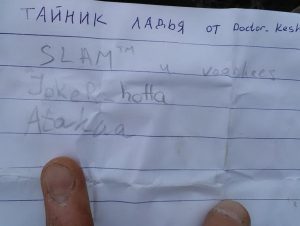 ТАЙНИК ЛАДЬЯ ОТ Doctor. Kesh
SLAM™ и voodhees
Joker hotta